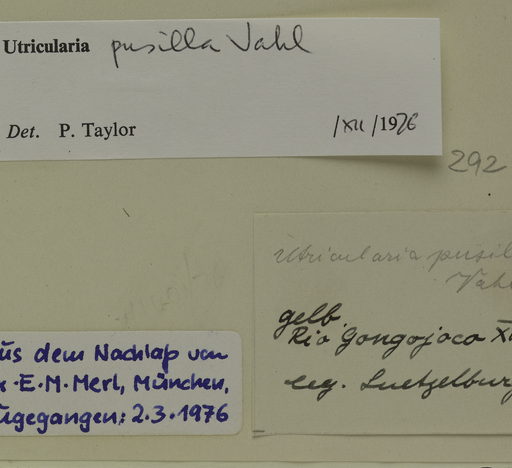 Utricularia pusilla Vahl
Det. P. Taylor /XII/1976
292
Utricularia pusil
Vahl
gelb
Rio Gongojoco XI
leg. Luetzelburg
us dem Nachlaß von
E. M. Merl, München,
ugegangen: 2.3.1976